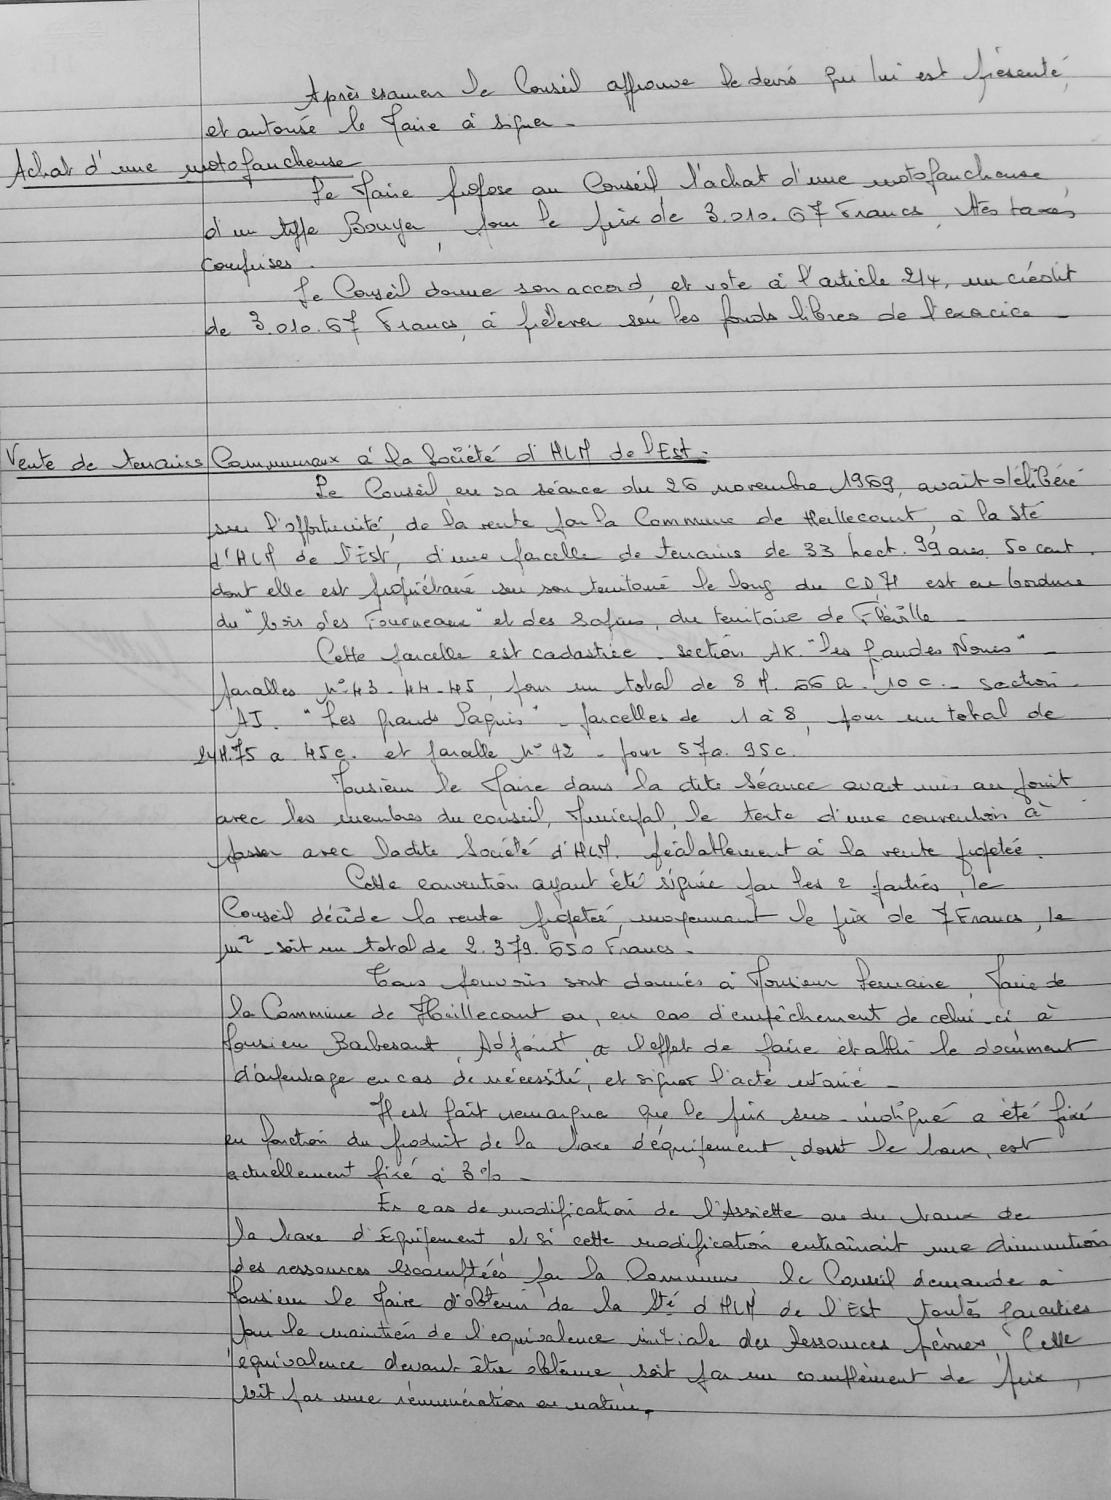 Après examen le Conseil approuve le devis qui lui est présenté,
et autorise le Maire à signer -
Achat d'une motofaucheuse
Le Maire propose au Conseil l'achat d'une motofaucheuse,
d'un type Bouyer, pour le prix de 3.010.67 Francs, ttes taxes
comprises.
Le Conseil donne son accord, et vote à l'article 214, un crédit
de 3.010.67 Francs, à prélever sur les fonds libres de l'exercice -
Vente de terrains Communaux à la Société d'HLM de l'Est -
Le Conseil, en sa séance du 26 novembre 1969, avait délibéré
sur l'opportunité, de la vente par la Commune de Heillecourt, à la Sté
d'HLM de l'Est, d'une parcelle de terrains de 33 hect. 99 ares 50 cent.
dont elle est propriétaire sur son territoire le long du CD 71 est en bordure
du "bois des Fourneaux" et des Sapins, du territoire de Fléville -
Cette parcelle est cadastrée - section AK. "Les Grandes Noues" -
parcelles n° 43 - 44 - 45, pour un total de 8 H. 66 a. 10 c. - section
AJ. "Les grands Paquis" - parcelles de 1 à 8, pour un total de
24H.75 a 45c. et parcelle n° 42 - pour 57a. 95c.
Monsieur le Maire dans la dite séance avait mis au point
avec les membres du conseil, Municipal, le texte d'une convention à
passer avec ladite Société d'HLM. préalablement à la vente projetée.
Cette convention ayant été signée par les 2 parties, le
Conseil décide la vente projetée, moyennant le prix de 7 Francs, le
m² - soit un total de 2.379.650 Francs -
Tous pouvoirs sont donnés à Monsieur Lemaire, Maire de
la Commune de Heillecourt ou, en cas d'empêchement de celui-ci à
Monsieur Barbesant, Adjoint, a l'effet de faire établir le document
d'arpentage en cas de nécessité, et signer l'acte notarié -
Il est fait remarque que le prix sus-indiqué a été fixé
en fonction du produit de la taxe d'équipement, dont le taux, est
actuellement fixé à 3% -
En cas de modification de l'Assiette ou du taux de
la taxe d'Equipement et si cette modification entraînait une diminution
des ressources escomptées par la Commune le Conseil demande à
Monsieur le Maire d'obtenir de la Sté d'HLM de l'Est toutes garanties
pour le maintien de l'equivalence initiale des ressources prévues, Cette
équivalence devant être obtenue soit par un complément de prix,
soit par une rémunération en nature.